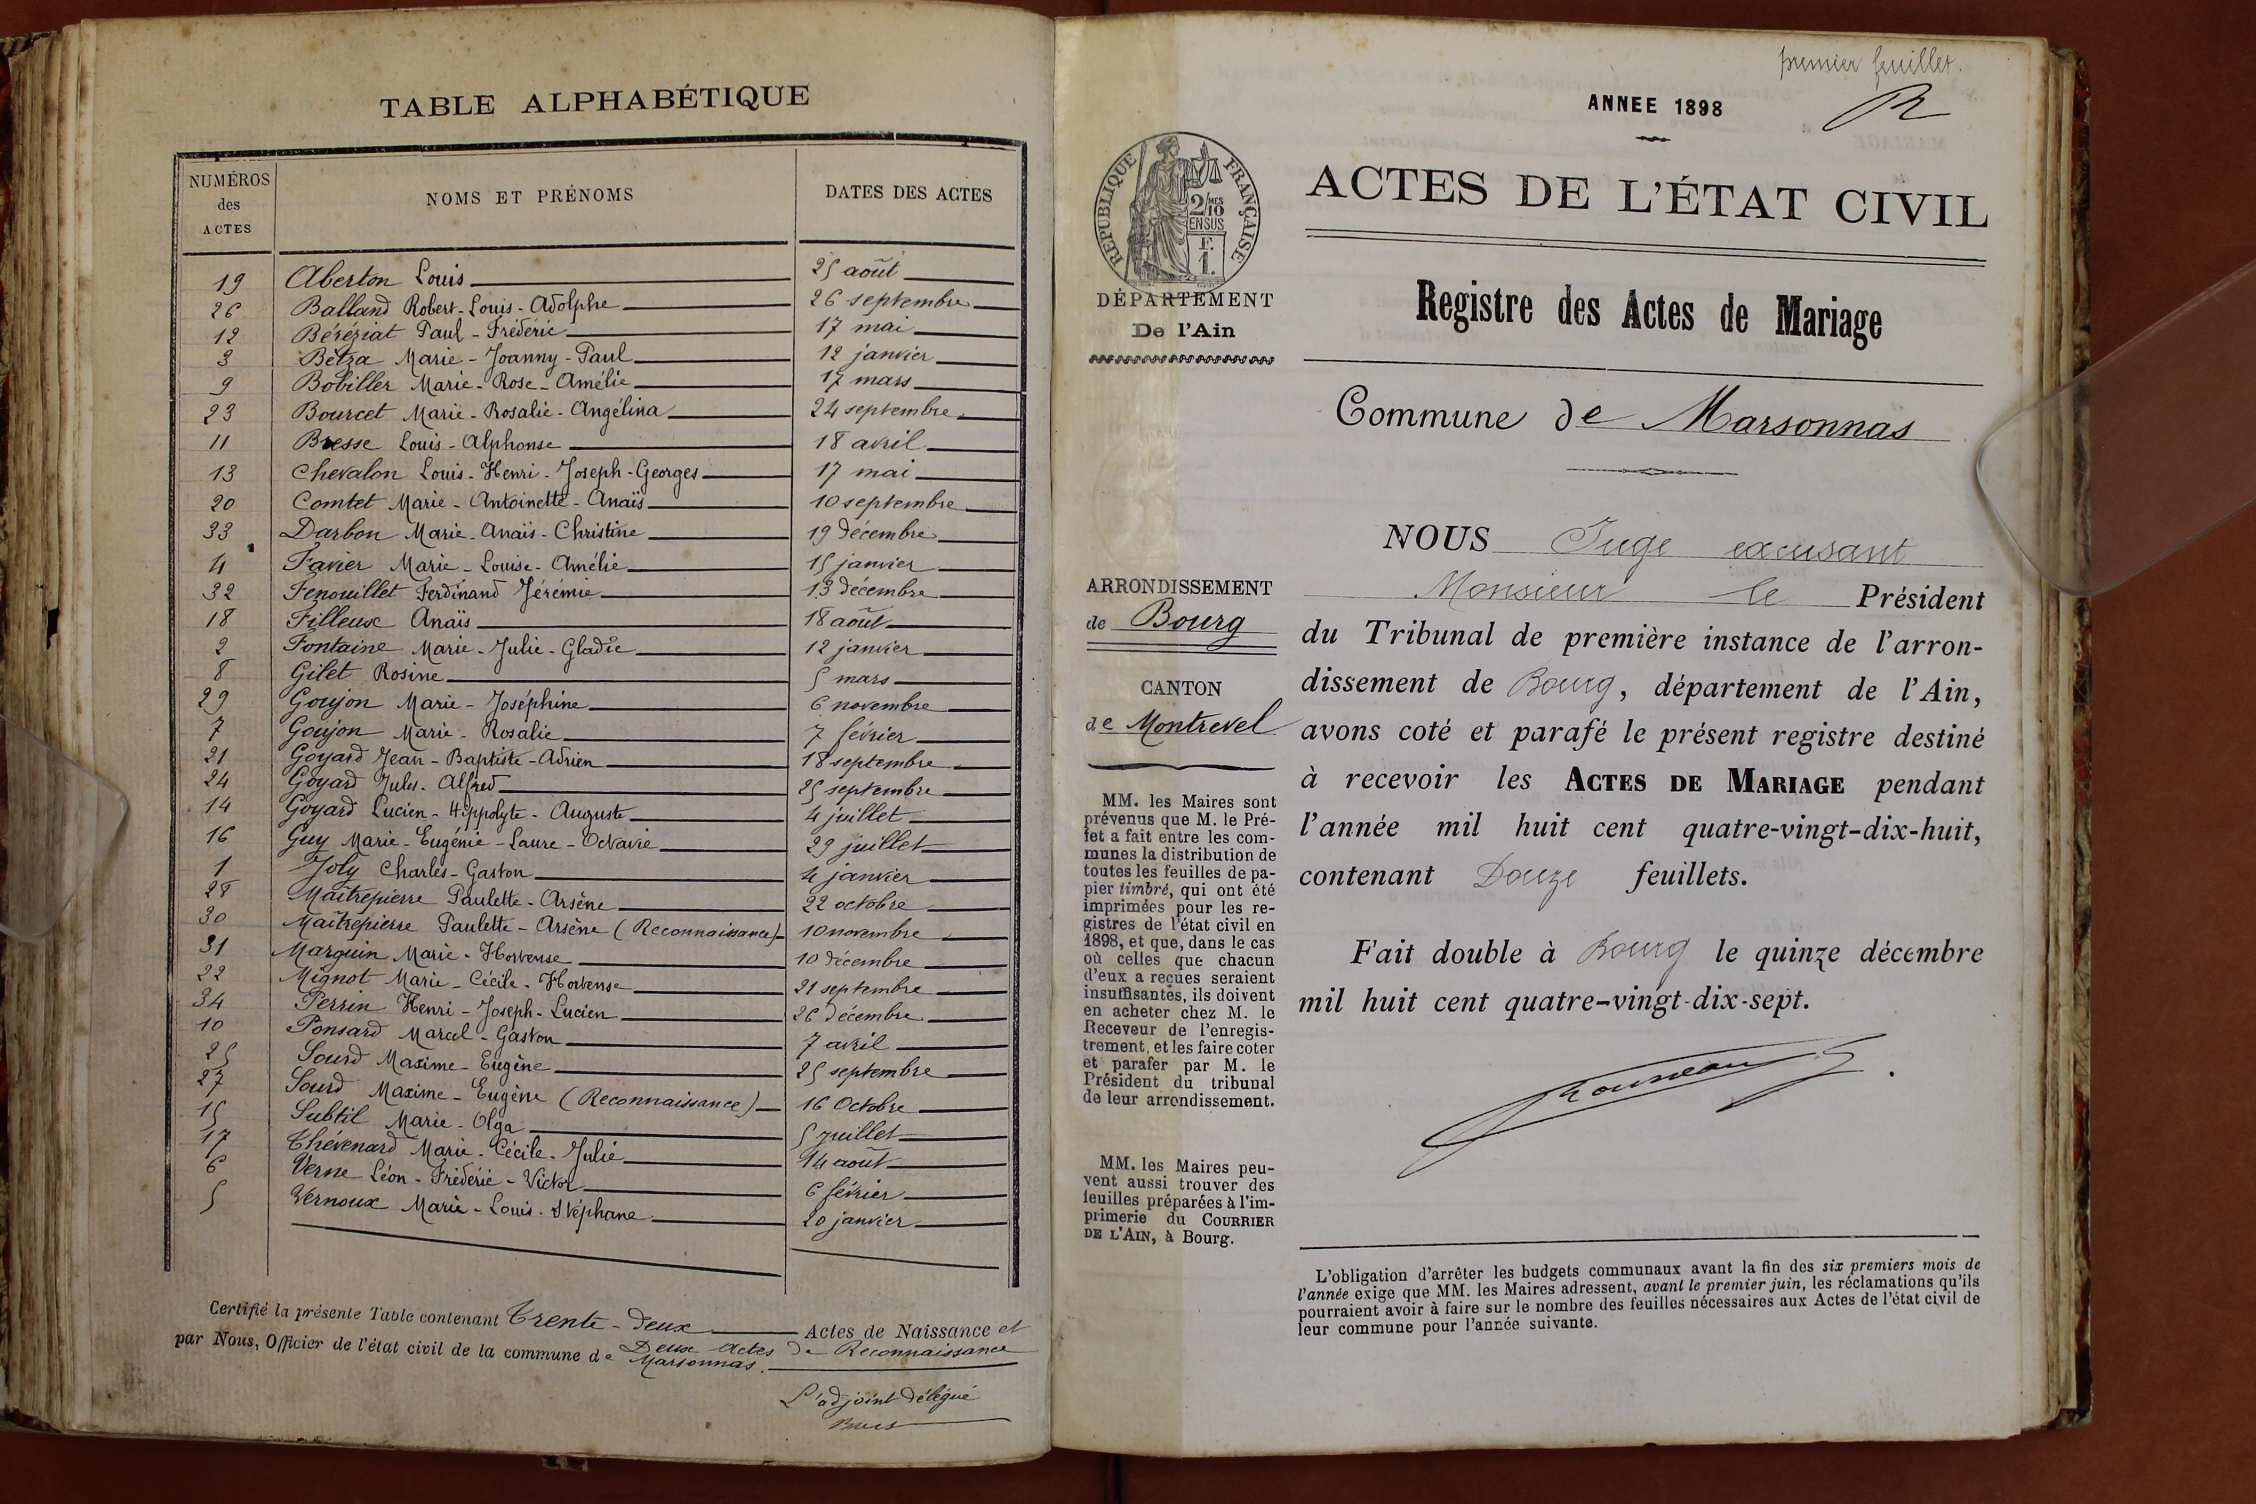 TABLE ALPHABÉTIQUE
NUMÉROS des ACTES NOMS ET PRÉNOMS DATES DES ACTES
19 Aberton Louis 25 août
26 Balland Robert-Louis-Adolphe 26 septembre
12 Béréziat Paul-Frédéric 17 mai
3 Bétza Marie-Joanny-Paul 12 janvier
9 Bobiller Marie-Rose-Amélie 17 mars
23 Bourcet Marie-Rosalie-Angélina 24 septembre
11 Bresse Louis-Alphonse 18 avril
13 Chevalon Louis-Henri-Joseph-Georges 17 mai
20 Comtet Marie-Antoinette-Anaïs 10 septembre
33 Darbon Marie-Anaïs-Christine 19 décembre
4 Favier Marie-Louise-Amélie 15 janvier
32 Fenouillet Ferdinand Jérémie 13 décembre
18 Filleux Anaïs 18 août
2 Fontaine Marie-Julie-Gladie 12 janvier
8 Gilet Rosine 5 mars
29 Goujon Marie-Joséphine 6 novembre
7 Goujon Marie-Rosalie 7 février
21 Goyard Jean-Baptiste-Adrien 18 septembre
24 Goyard Jules-Alfred 25 septembre
14 Goyard Lucien-Hippolyte-Auguste 4 juillet
16 Guy Marie-Eugénie-Laure-Octavie 29 juillet
1 Joly Charles-Gaston 4 janvier
28 Maîtrepierre Paulette-Arsène 22 octobre
30 Maîtrepierre Paulette-Arsène (Reconnaissance) 10 novembre
31 Marguin Marie-Hortense 10 décembre
22 Mignot Marie-Cécile-Hortense 21 septembre
34 Perrin Henri-Joseph-Lucien 26 décembre
10 Ponsard Marcel-Gaston 7 avril
25 Sourd Maxime-Eugène 25 septembre
27 Sourd Maxime-Eugène (Reconnaissance) 16 Octobre
15 Subtil Marie-Olga 5 juillet
17 Thévenard Marie-Cécile-Julie 14 août
6 Verne Léon-Frédéric-Victor 6 février
5 Vernoux Marie-Louis-Stéphane 20 janvier
Certifié la présente Table contenant Trente-deux Actes de Naissance et
Deux Actes de Reconnaissance
par Nous, Officier de l'état civil de la commune de Marsonnas.
L'adjoint délégué
premier feuillet.
ANNEE 1898
ACTES DE L'ÉTAT CIVIL
RÉPUBLIQUE FRANÇAISE
2/10 MES
EN SUS
F.
1.
DÉPARTEMENT
De l'Ain
Registre des Actes de Mariage
Commune de Marsonnas
ARRONDISSEMENT
de Bourg
CANTON
de Montrevel
MM. les Maires sont
prévenus que M. le Pré-
fet a fait entre les com-
munes la distribution de
toutes les feuilles de pa-
pier timbré, qui ont été
imprimées pour les re-
gistres de l'état civil en
1898, et que, dans le cas
où celles que chacun
d'eux a reçues seraient
insuffisantes, ils doivent
en acheter chez M. le
Receveur de l'enregis-
trement, et les faire coter
et parafer par M. le
Président du tribunal
de leur arrondissement.
MM. les Maires peu-
vent aussi trouver des
feuilles préparées à l'im-
primerie du COURRIER
DE L'AIN, à Bourg.
NOUS Juge excusant
Monsieur le Président
du Tribunal de première instance de l'arron-
dissement de Bourg, département de l'Ain,
avons coté et parafé le présent registre destiné
à recevoir les ACTES DE MARIAGE pendant
l'année mil huit cent quatre-vingt-dix-huit,
contenant Douze feuillets.
Fait double à Bourg le quinze décembre
mil huit cent quatre-vingt-dix-sept.
L'obligation d'arrêter les budgets communaux avant la fin des six premiers mois de
l'année exige que MM. les Maires adressent, avant le premier juin, les réclamations qu'ils
pourraient avoir à faire sur le nombre des feuilles nécessaires aux Actes de l'état civil de
leur commune pour l'année suivante.